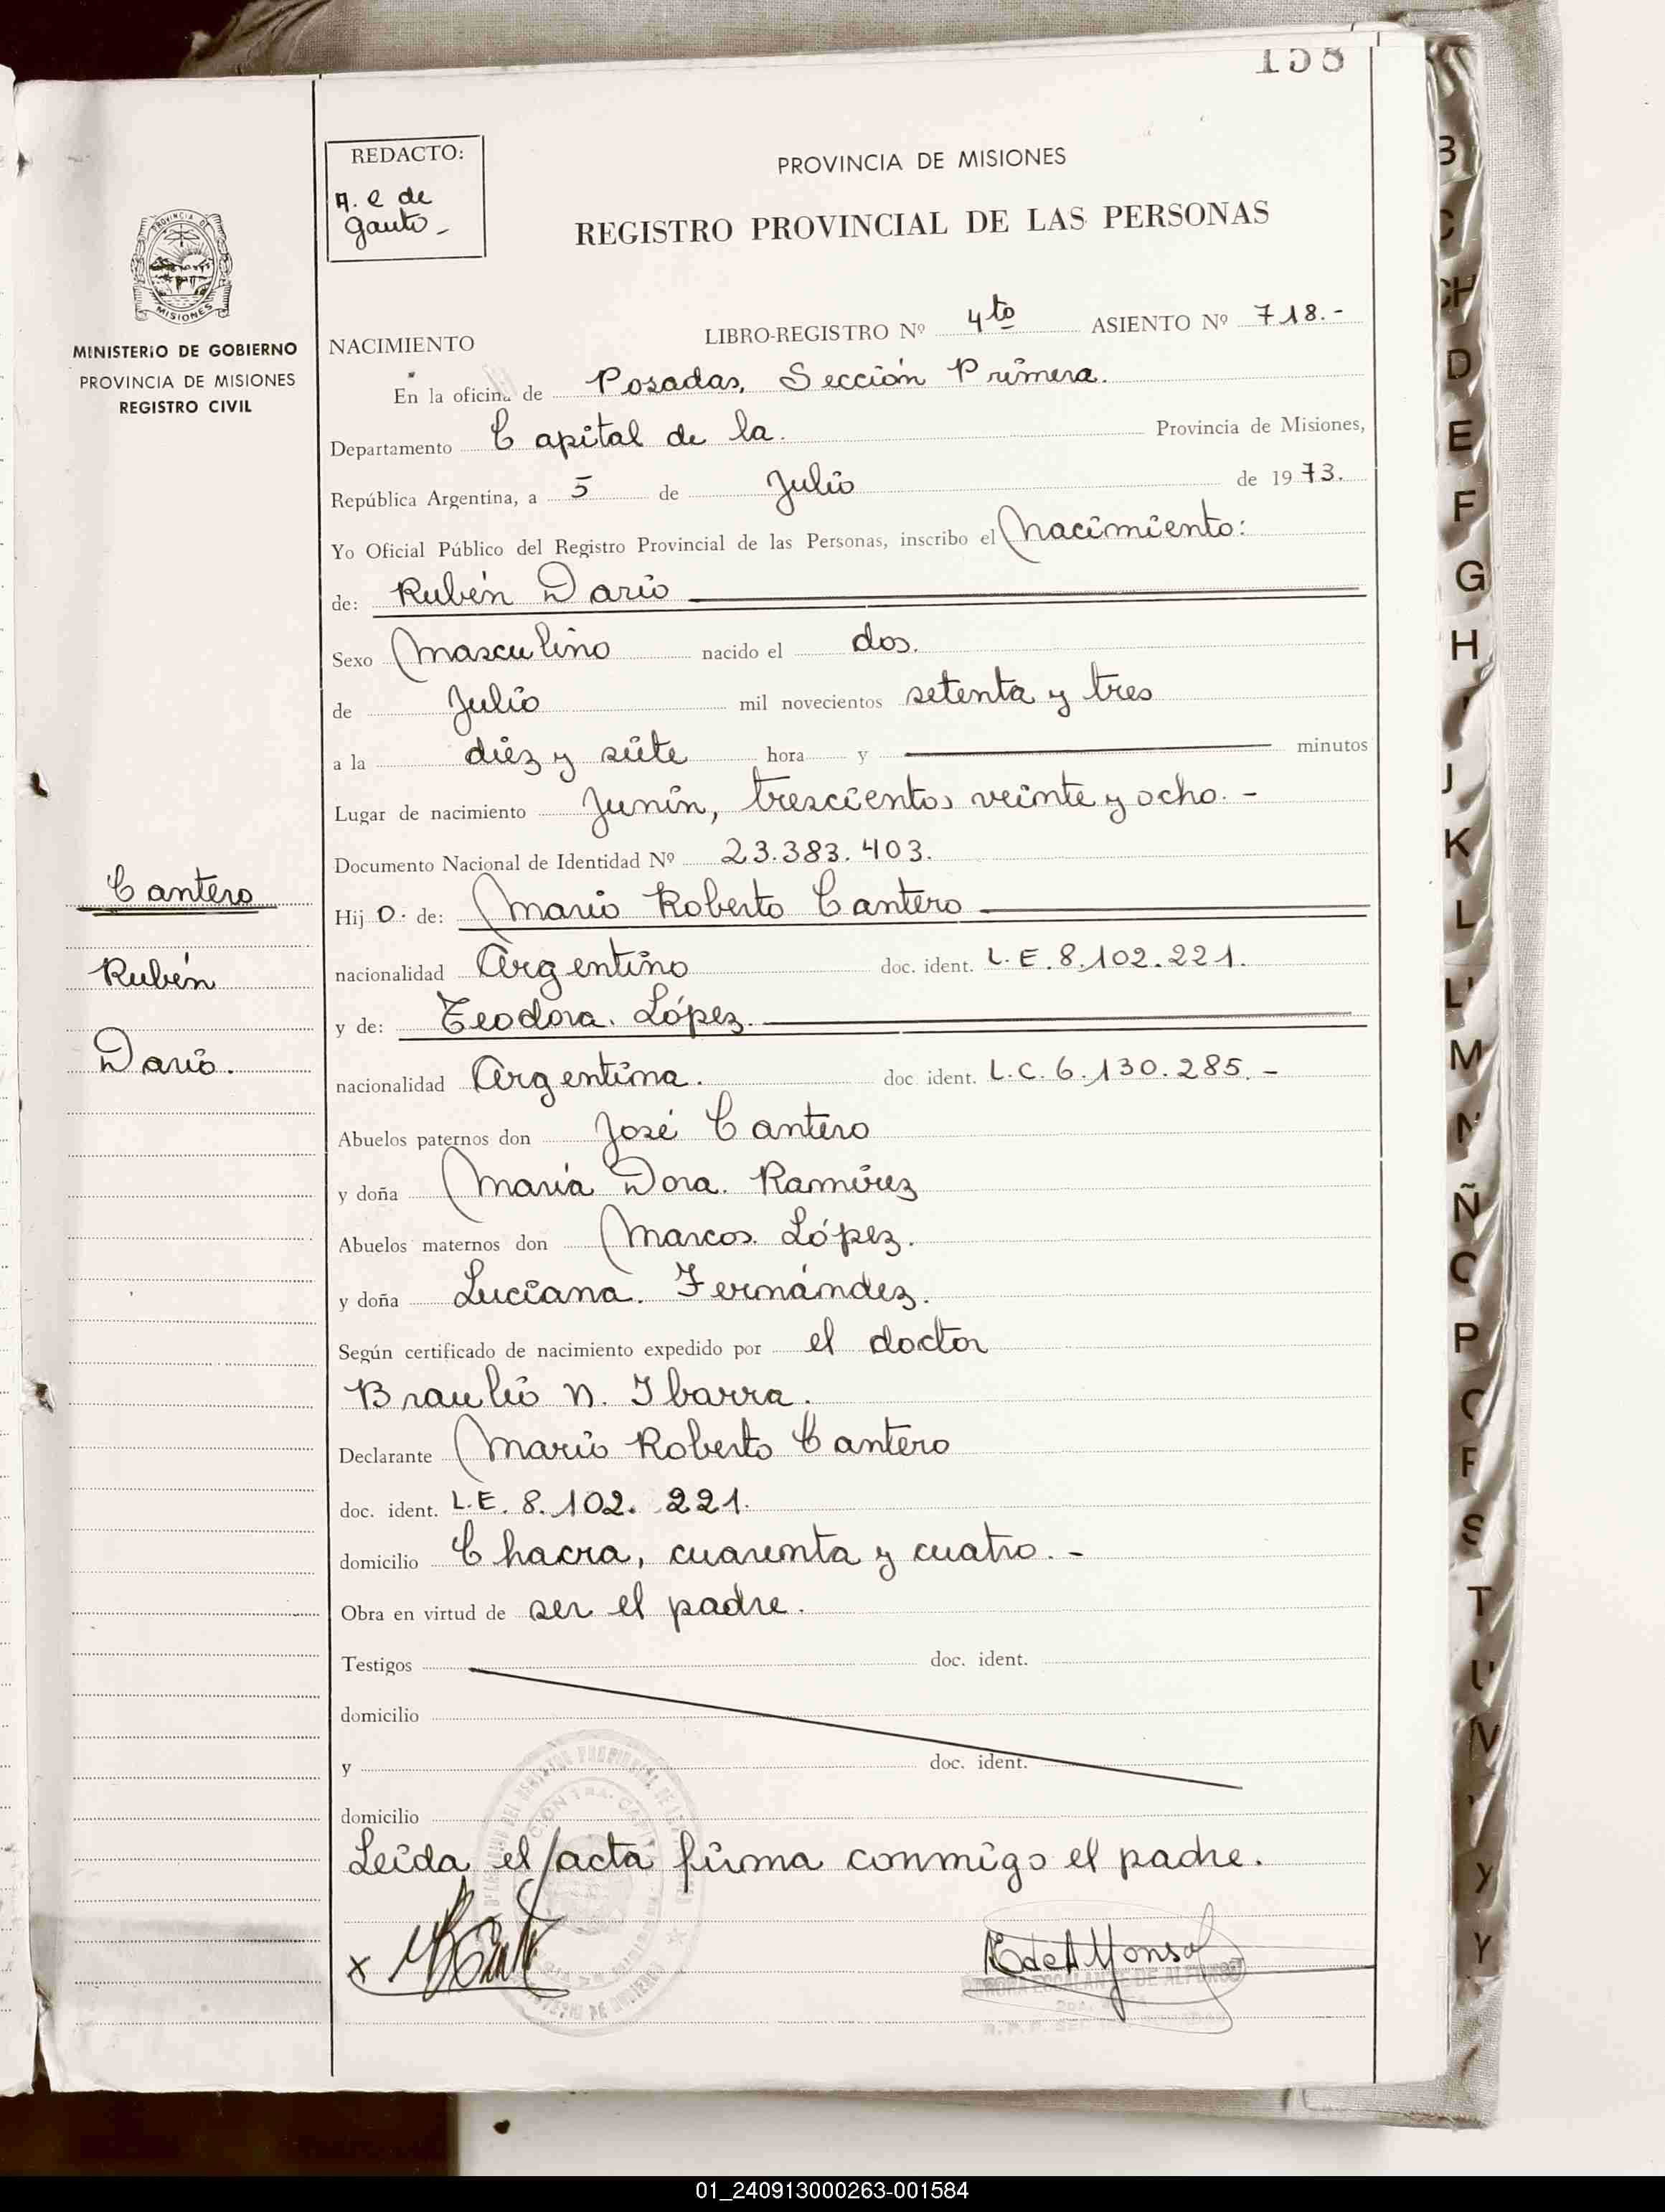 158
REDACTO:
A. e de
Gauto -
PROVINCIA DE MISIONES
REGISTRO PROVINCIAL DE LAS PERSONAS
PROVINCIA DE
MISIONES
MINISTERIO DE GOBIERNO
PROVINCIA DE MISIONES
REGISTRO CIVIL
NACIMIENTO LIBRO-REGISTRO Nº 4to ASIENTO Nº 718.-
En la oficina de Posadas, Sección Primera.
Departamento Capital de la. Provincia de Misiones,
República Argentina, a 5 de Julio de 1973.
Yo Oficial Público del Registro Provincial de las Personas, inscribo el Nacimiento:
de: Rubén Darío
Sexo Masculino nacido el dos.
de Julio mil novecientos setenta y tres
a la diez y siete hora y minutos
Lugar de nacimiento Junín, trescientos veinte y ocho. -
Documento Nacional de Identidad Nº 23.383.403.
Hij o. de: Mario Roberto Cantero
nacionalidad Argentino doc. ident. L.E. 8.102.221.
y de: Teodora. López.
nacionalidad Argentina. doc ident. L.C. 6.130.285. -
Abuelos paternos don José Cantero
y doña María Dora. Ramírez
Abuelos maternos don Marcos. López.
y doña Luciana. Fernández.
Según certificado de nacimiento expedido por el doctor
Braulio N. Ibarra.
Declarante Mario Roberto Cantero
doc. ident. L.E. 8.102.221.
domicilio Chacra, cuarenta y cuatro. -
Obra en virtud de ser el padre.
Testigos doc. ident.
domicilio
y doc. ident.
domicilio
Leída el acta firma conmigo el padre.
x
ESCALANTE DE ALFONSO
Cantero
Rubén
Darío.
B
C
CH
D
E
F
G
H
I
J
K
L
LL
M
N
Ñ
O
P
Q
R
S
T
U
V
Y
Y
01_240913000263-001584